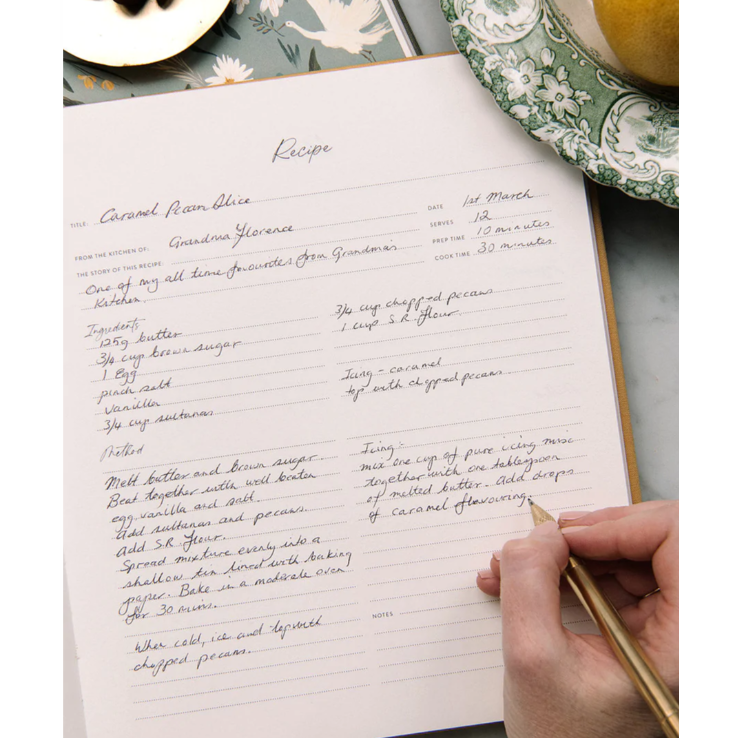 Recipe
TITLE: Caramel Pecan Slice
FROM THE KITCHEN OF: Grandma Florence
THE STORY OF THIS RECIPE:
One of my all time favourites from Grandma's
Kitchen.
DATE 1st March
SERVES 12
PREP TIME 10 minutes
COOK TIME 30 minutes
Ingredients
125g butter
3/4 cup brown sugar
1 Egg
pinch salt
Vanilla
3/4 cup sultanas
3/4 cup chopped pecans
1 cup S.R. flour.
Icing - caramel
top with chopped pecans.
Method
Melt butter and brown sugar.
Beat together with well beaten
egg, vanilla and salt.
Add sultanas and pecans.
Add S.R. flour.
Spread mixture evenly into a
shallow tin lined with baking
paper. Bake in a moderate oven
for 30 mins.
When cold, ice and top with
chopped pecans.
Icing:-
mix one cup of pure icing mix
together with one tablespoon
of melted butter. Add drops
of caramel flavouring.
NOTES